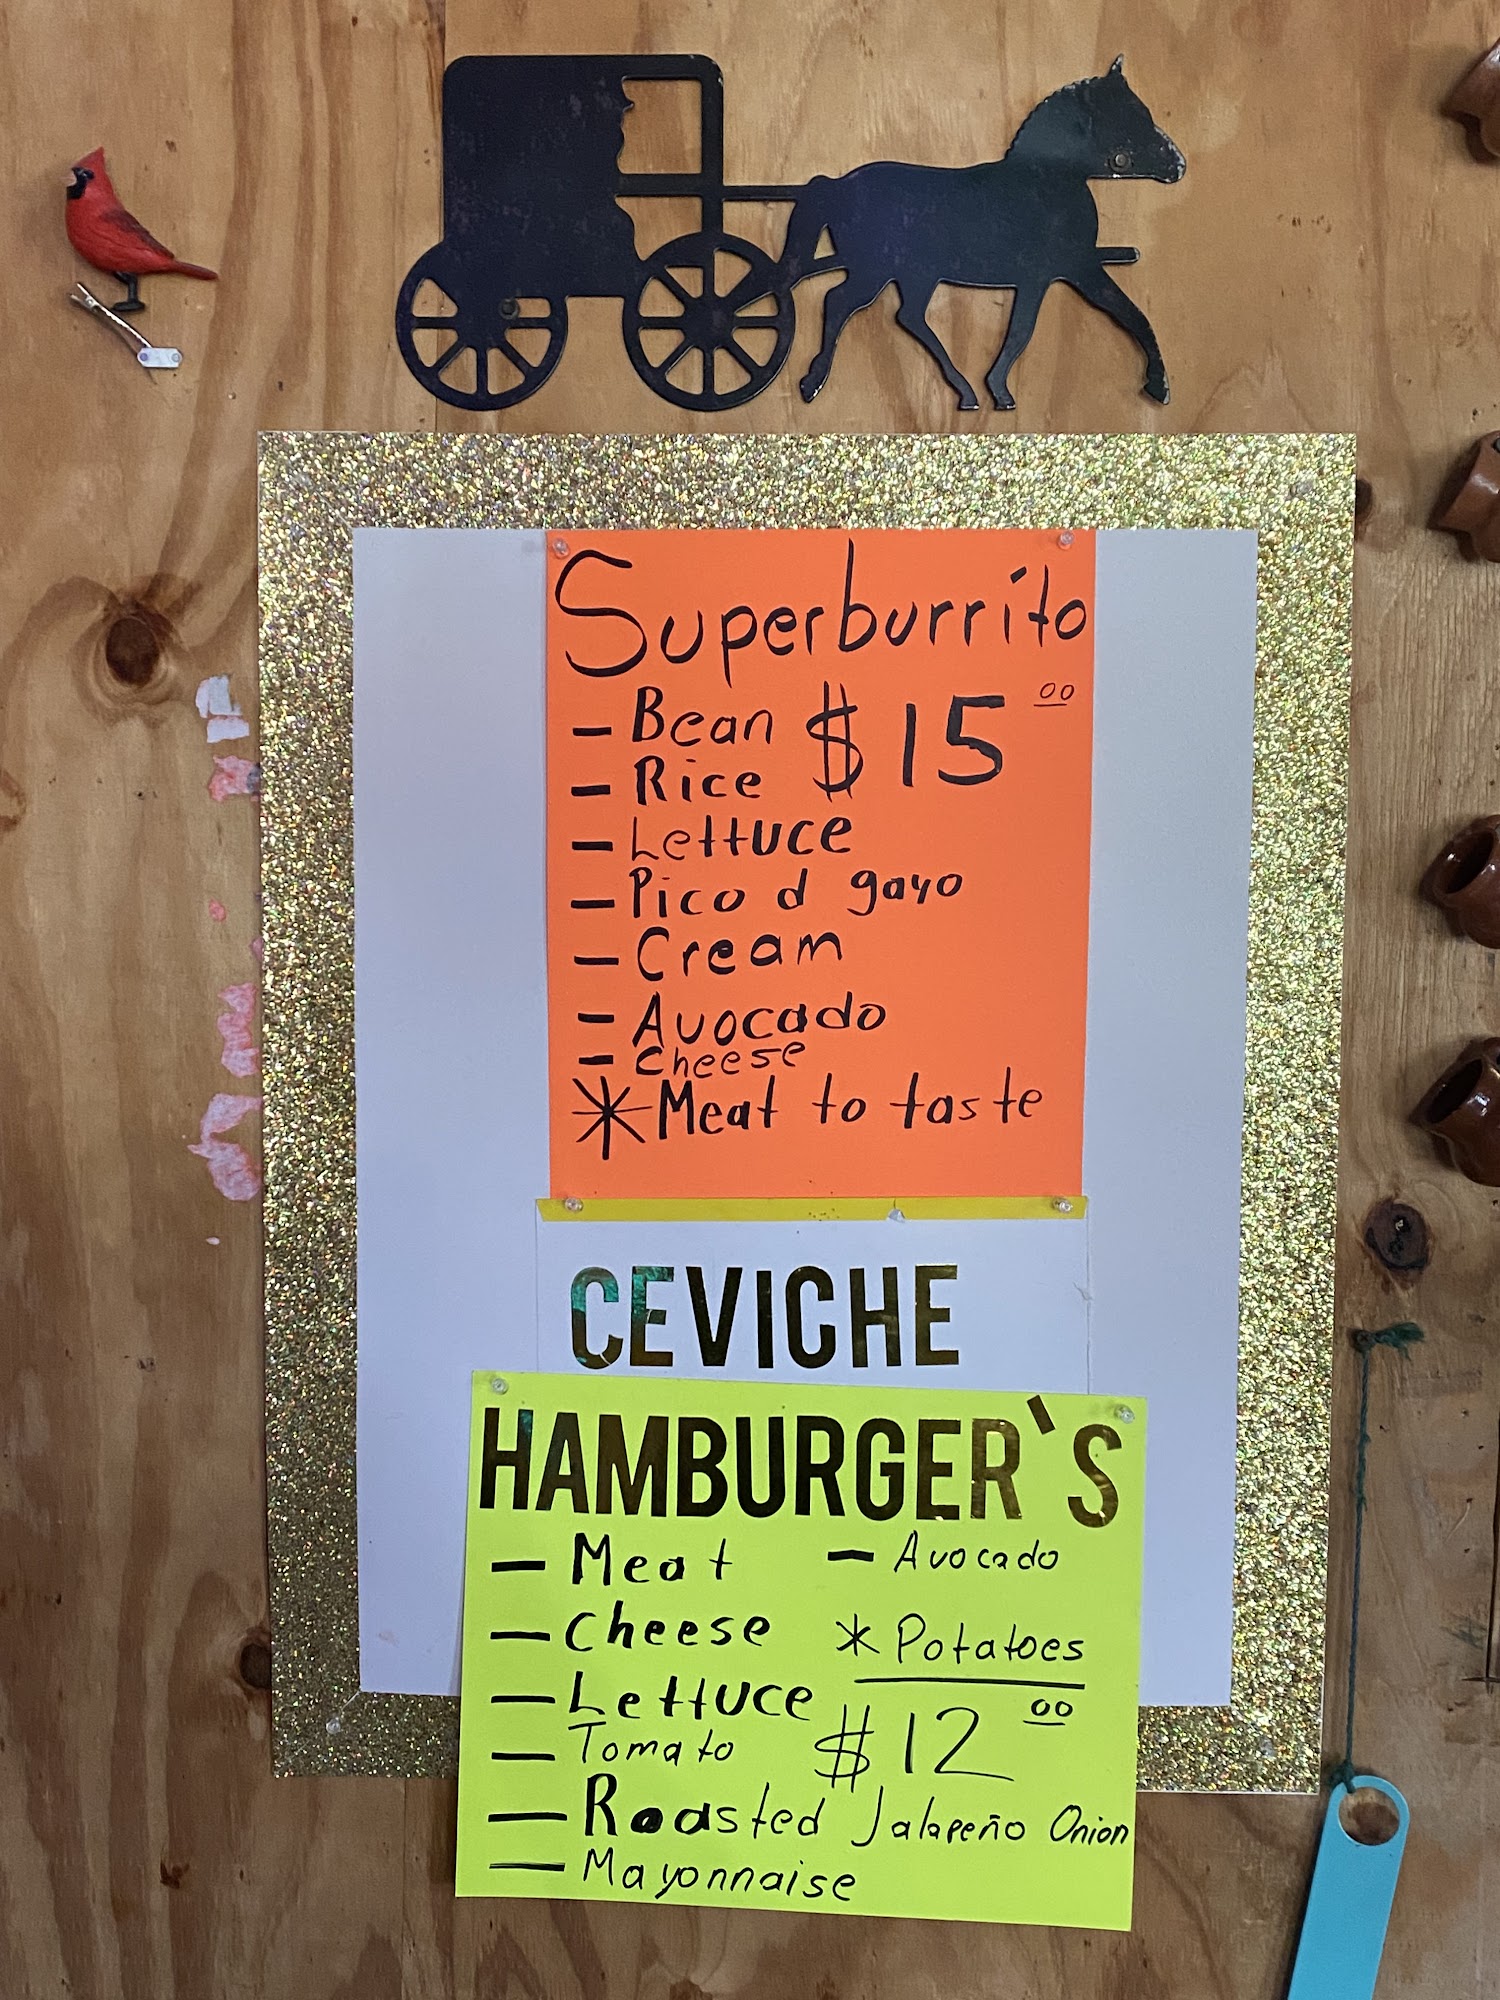 Superburrito
- Bean $15 00
- Rice
- Lettuce
- Pico d gayo
- Cream
- Avocado
- cheese
* Meat to taste
CEVICHE
HAMBURGER'S
- Meat - Avocado
- cheese * Potatoes
- Lettuce $12 00
- Tomato
- Roasted Jalapeño Onion
- Mayonnaise